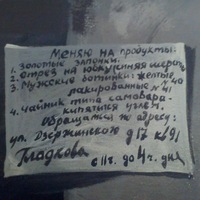 Меняю на продукты:
1. Золотые запонки.
2. Отрез на юбку, синяя шерсть
3. Мужские ботинки: желтые, N 40
лакированные N 41
4. Чайник типа самовара.
кипятился углем.
Обращаться по адресу:
ул. Дзержинского д 17 кв 91
Гладкова
с 11 ч. до 4 ч. дня